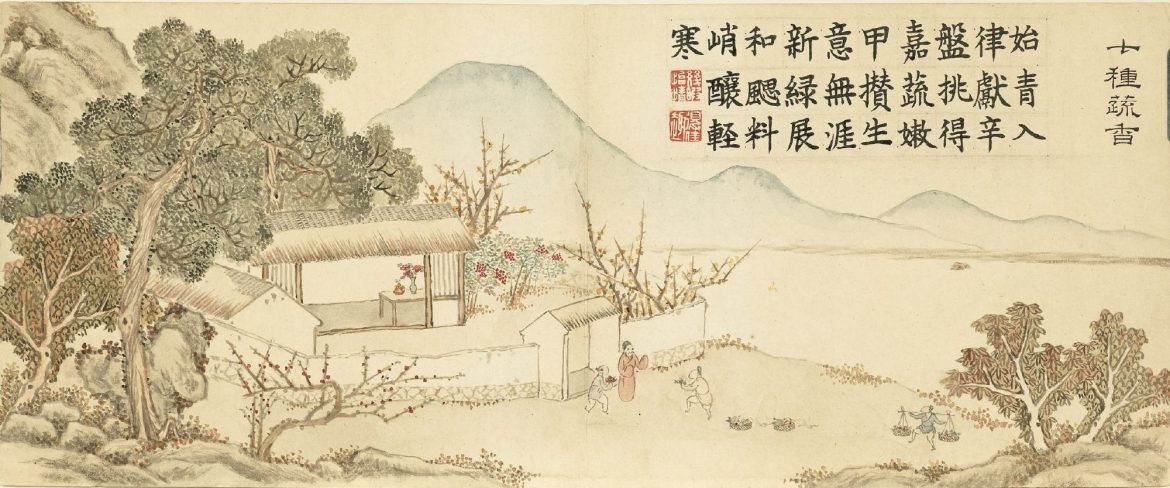 七種蔬香
始青入
律獻辛
盤挑得
嘉蔬嫩
甲攢生
意無涯
新緑展
和颸料
峭釀軽
寒